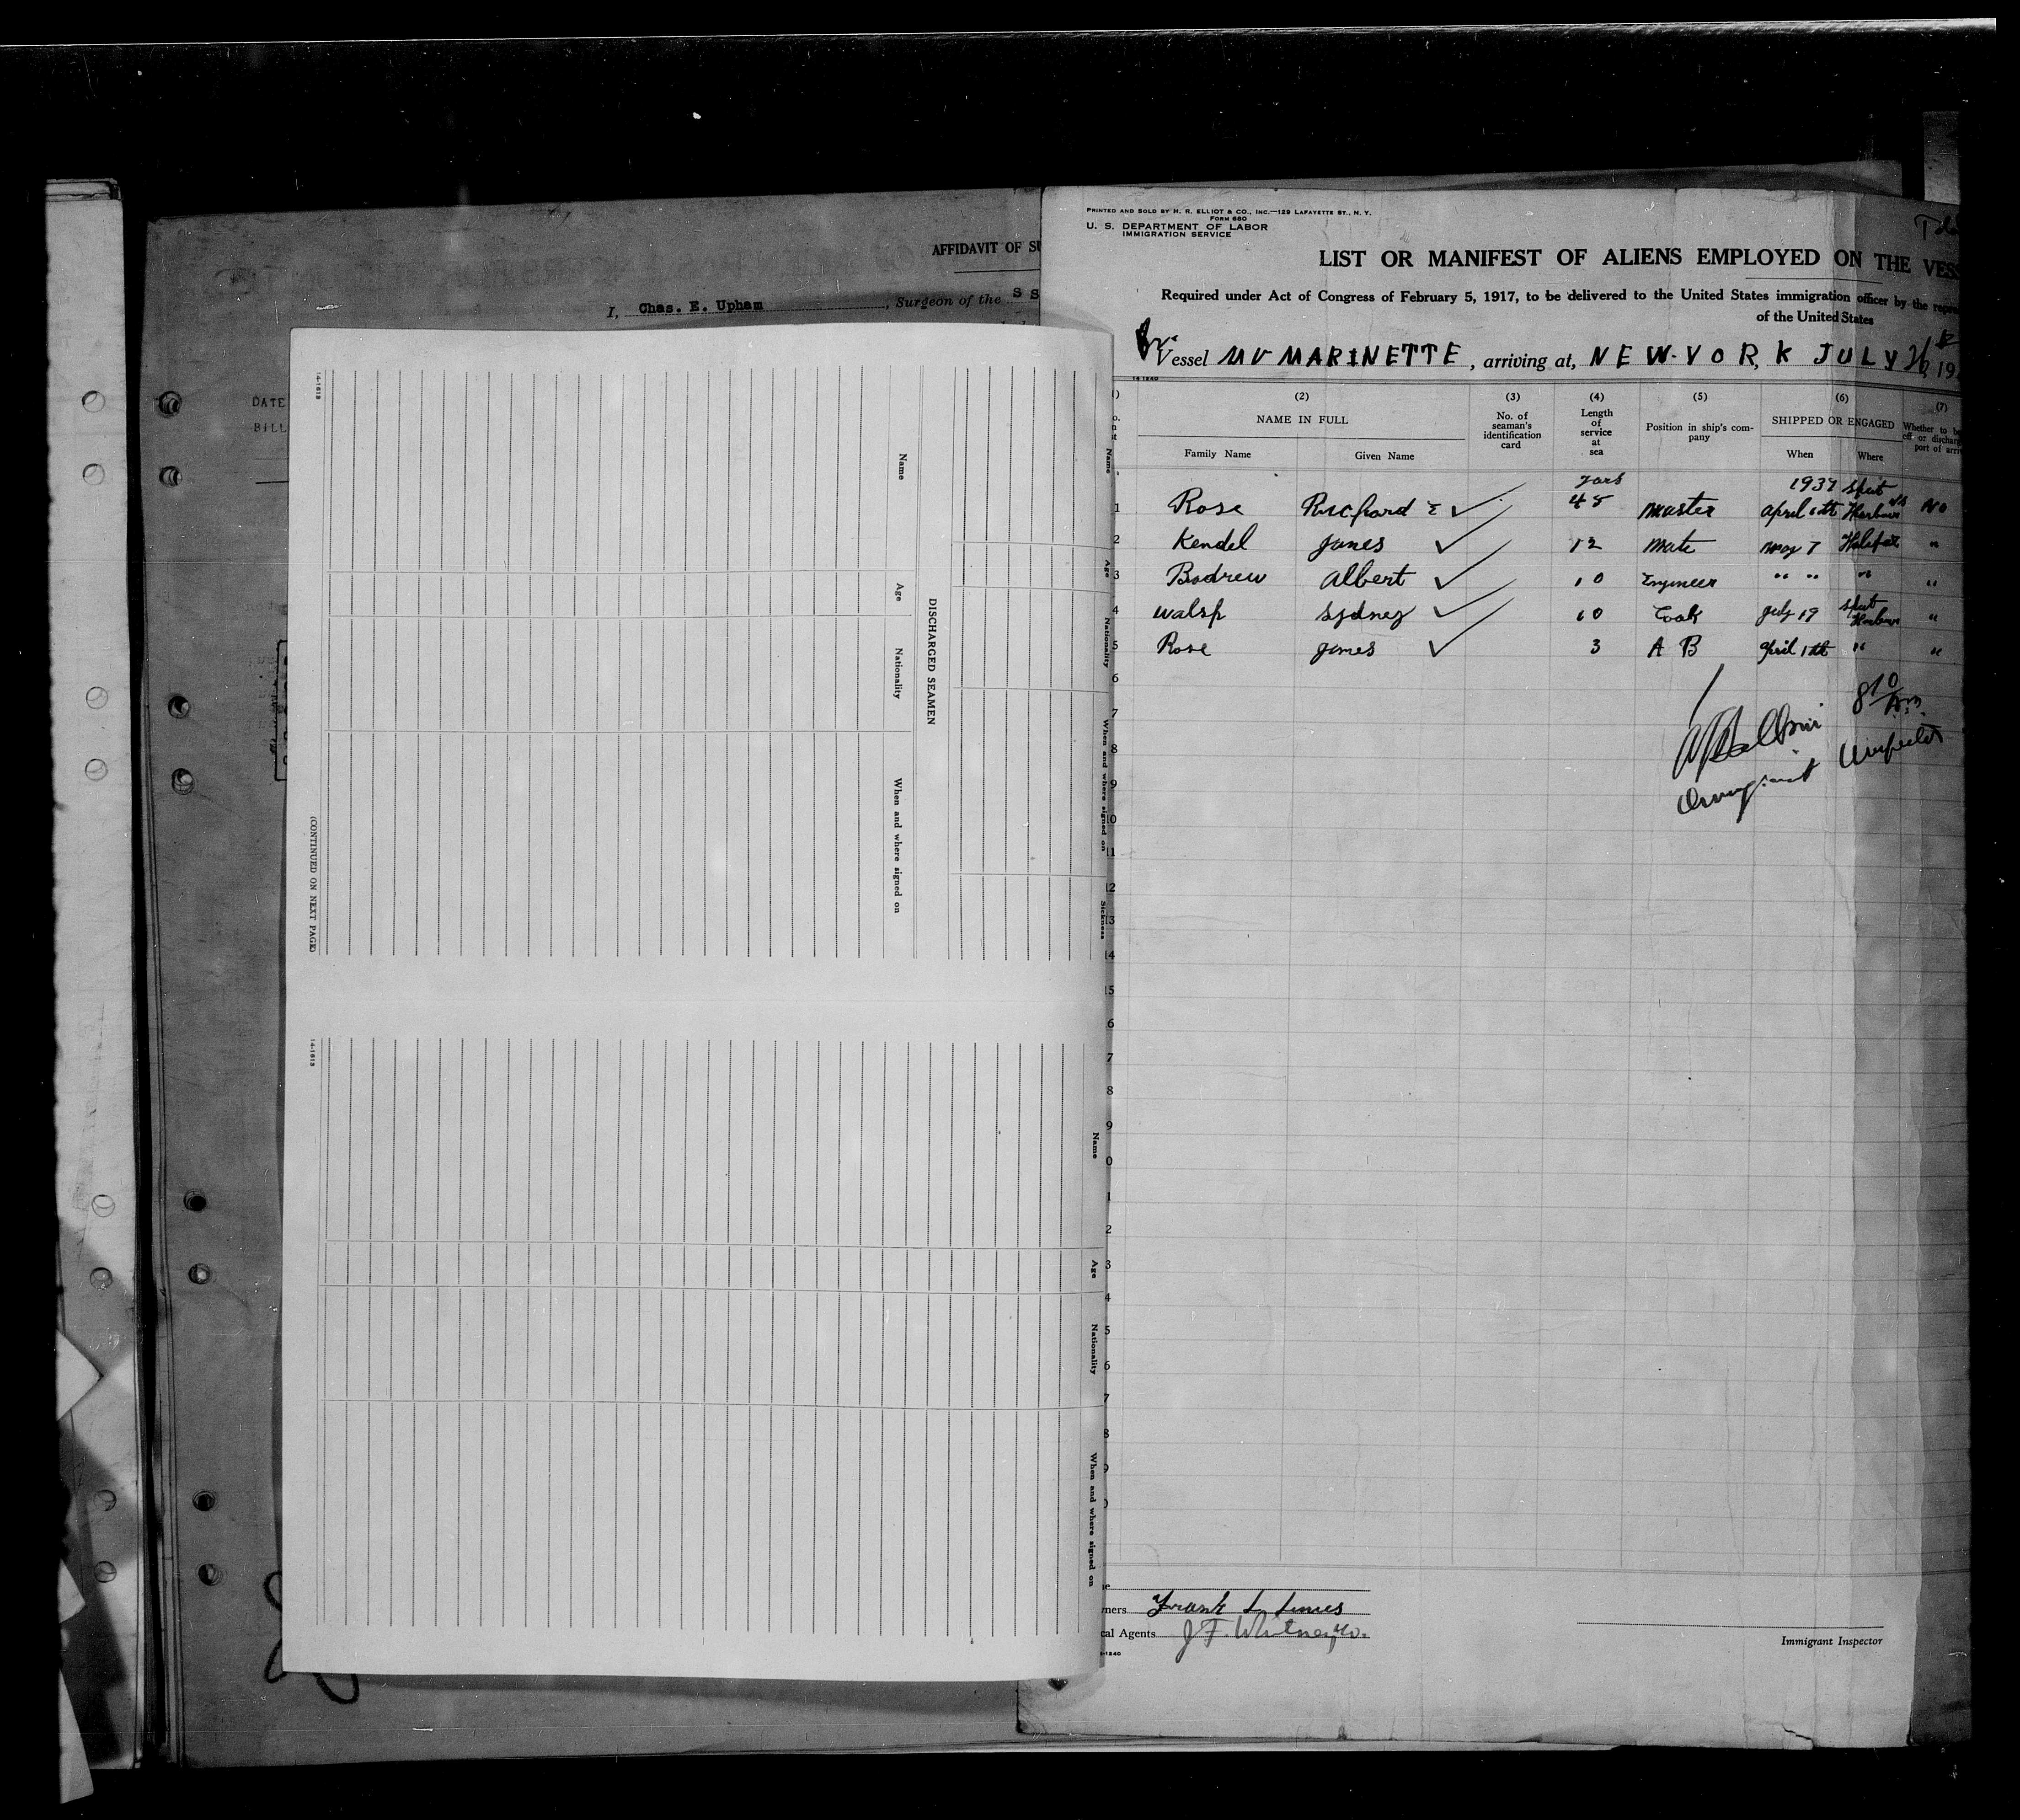 AFFIDAVIT OF SU
I, Chas. E. Upham, Surgeon of the S S
DATE
BILL
14-1613
Name Age Nationality When and where signed on Sickness
DISCHARGED SEAMEN
Name Age Nationality When and where signed on
(CONTINUED ON NEXT PAGE)
14-1613
Name Age Nationality When and where signed on
PRINTED AND SOLD BY H. R. ELLIOT & CO., INC.—129 LAFAYETTE ST., N. Y.
FORM 680
U. S. DEPARTMENT OF LABOR
IMMIGRATION SERVICE
LIST OR MANIFEST OF ALIENS EMPLOYED ON THE VESS
Required under Act of Congress of February 5, 1917, to be delivered to the United States immigration officer by the repre
of the United States
Br. Vessel MV MARINETTE, arriving at, NEW-YORK JULY 26, 19
14-1240
(2) (3) (4) (5) (6) (7)
NAME IN FULL
Family Name Given Name
No. of seaman's identification card
Length of service at sea
Position in ship's company
SHIPPED OR ENGAGED
When Where
Whether to be
off or discharg
port of arri
years 1937 Sput
1 Rose Richard E 45 Master April 1th Harbour NS No
2 Kendel James 12 Mate May 7 Halifax "
3 Bodrew Albert 10 Engineer " " " "
4 Walsh Sydney 10 Cook July 19 Sput Harbour "
5 Rose James 3 A B April 1th " "
6
7
8
9
10
11
12
13
14
15
8 10 Am
Immigrant Inspector
ners Frank L Innes
cal Agents J. F. Whitney Co.
-1240
Immigrant Inspector